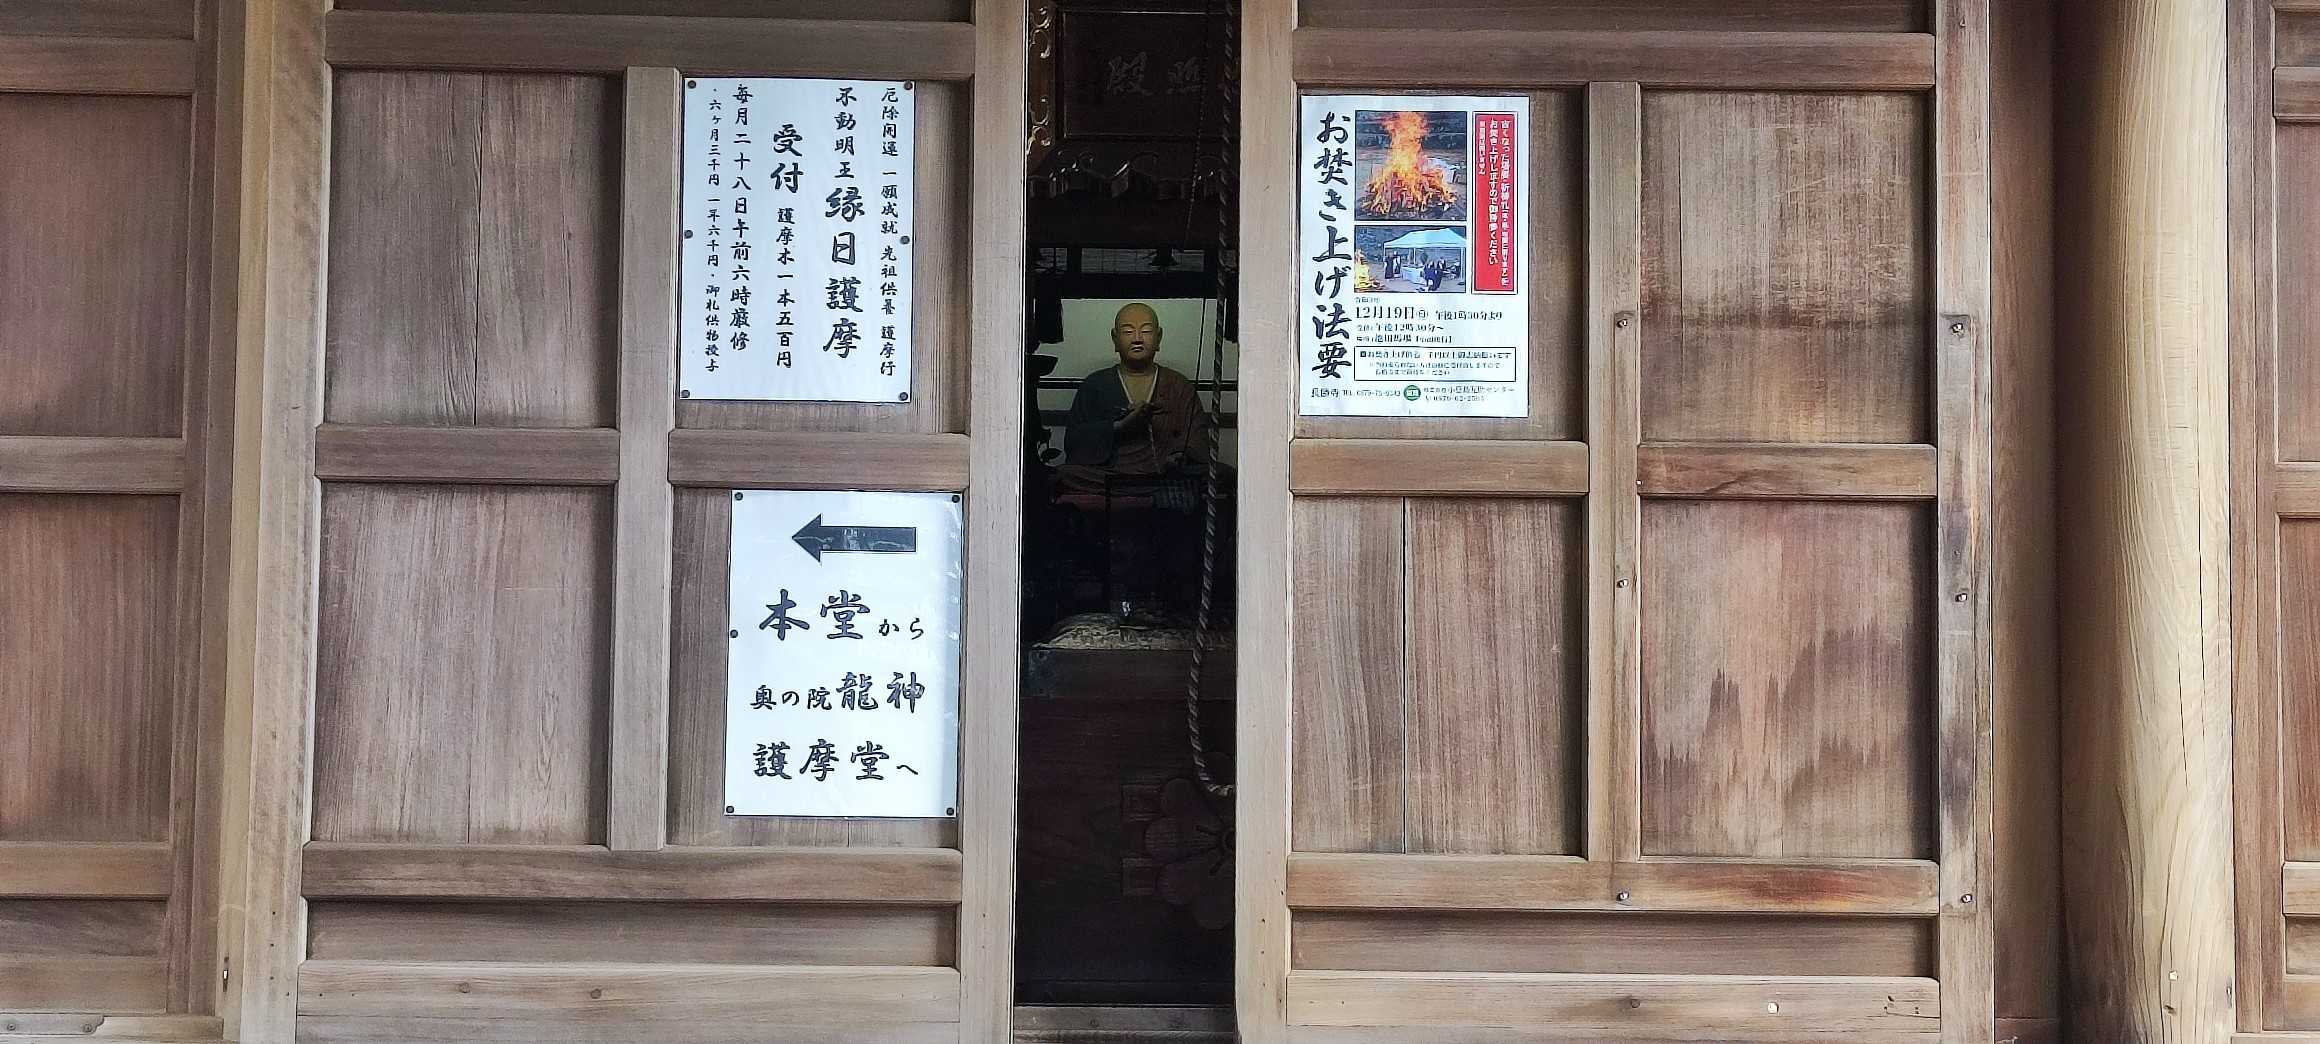 厄除開運 一願成就 先祖供養 護摩行
不動明王縁日護摩
受付 護摩木一本五百円
毎月二十八日午前六時厳修
・六ヶ月三千円 一年六千円・御札供物授与
本堂から
奥の院龍神
護摩堂へ
お焚き上げ法要
お焚き上げしますので御持参ください
12月19日㊐ 午後1時30分より
午後12時30分～
池田馬場
長勝寺